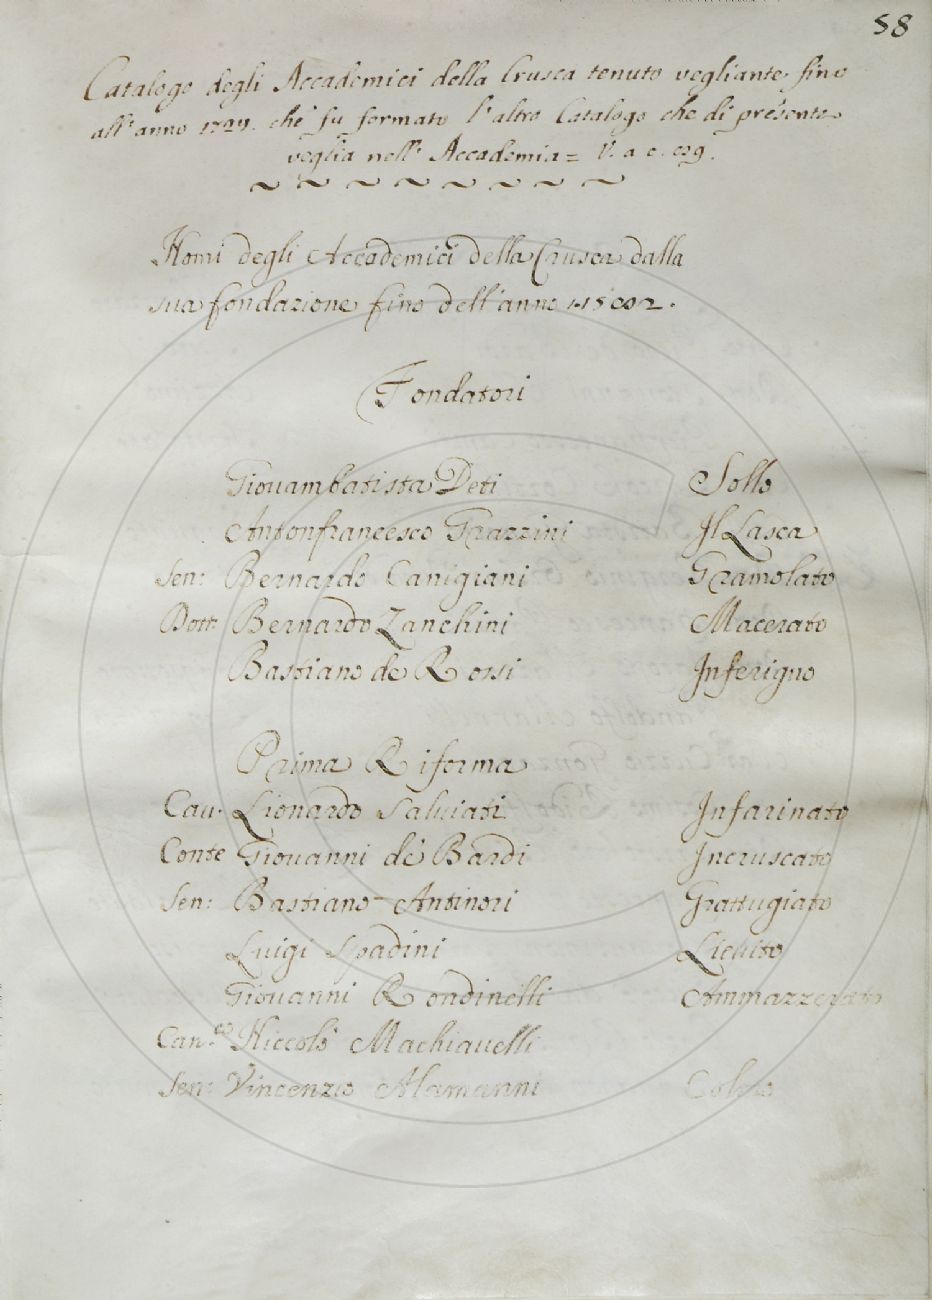 58
Catalogo degli Accademici della Crusca tenuto vegliante fino
all'anno 1724. che fu formato l'altro Catalogo che di presente
veglia nell' Accademia = V. a c.
Nomi degli Accademici della Crusca dalla
sua fondazione fino dell'anno
Fondatori
Giouambatista Deti Sollo
Antonfrancesco Grazzini Il Lasca
Sen: Bernardo Canigiani Gramolato
Dott: Bernardo Zanchini Macerato
Bastiano de Rossi Inferigno
Prima Riforma
Cau. Lionardo Saluiati Infarinato
Conte Giouanni de' Bardi Incruscato
Sen: Bastiano Antinori Grattugiato
Luigi Spadini Lieuito
Giouanni Rondinelli Ammazzerato
Can.co Niccolò Machiauelli
Sen: Vincenzio Alamanni